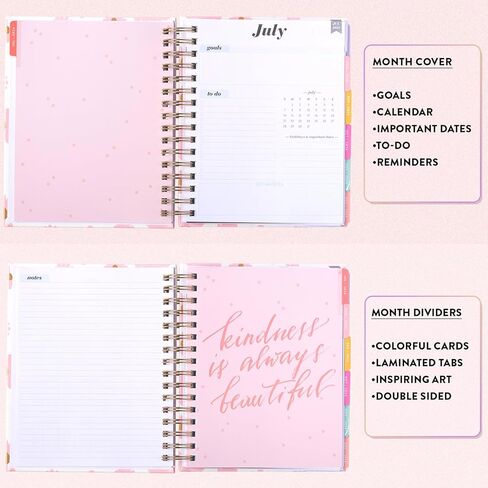 July
goals
to do
july
MONTH COVER
•GOALS
•CALENDAR
•IMPORTANT DATES
•TO-DO
•REMINDERS
notes
kindness
is always
beautiful
MONTH DIVIDERS
•COLORFUL CARDS
•LAMINATED TABS
•INSPIRING ART
•DOUBLE SIDED